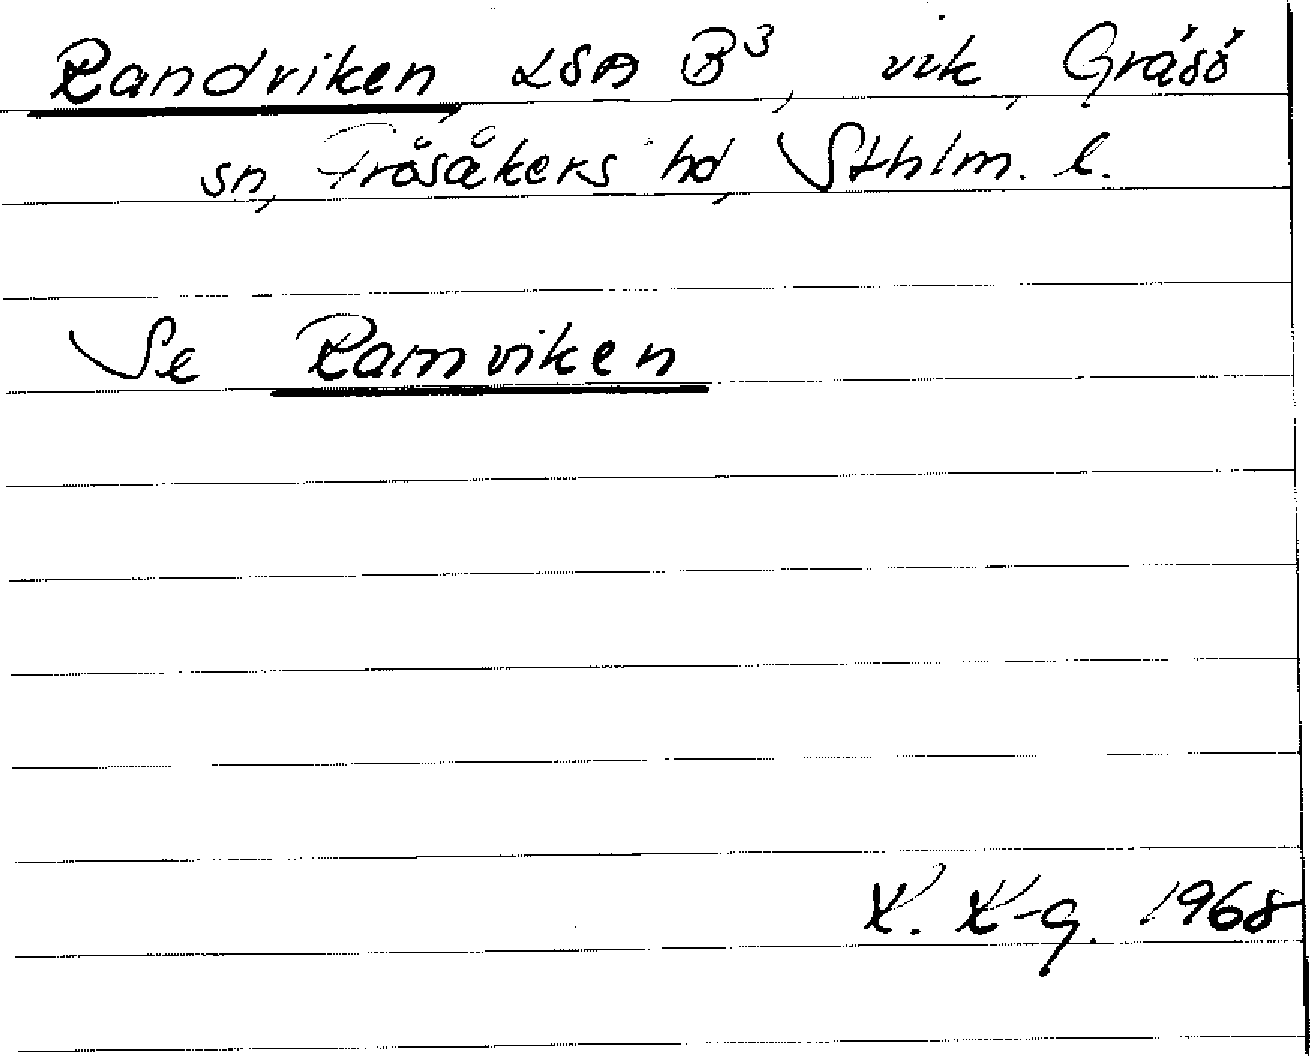 Randviken, LSA B³, vik, Gräsö
sn, Frösåkers hd, Sthlm. l.
Se Ramviken
K. K-g. 1968